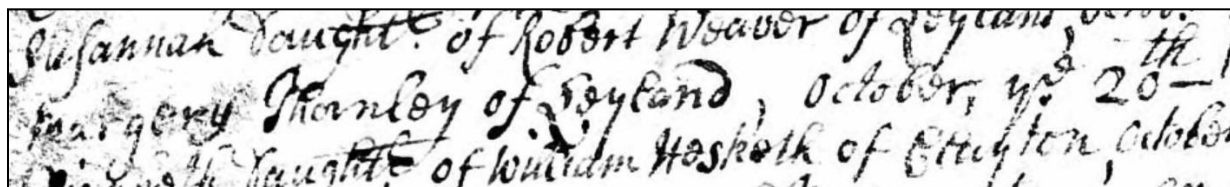 Susannah Daughtr of Robert Weaver of Leyland, Octob.
Margery Thornley of Leyland, October, ye 20th
Daughtr of William Hesketh of October